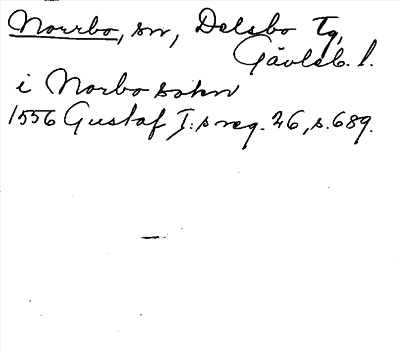 Norrbo, sn, Delsbo Tg,
Gävleb. l.
i Norbo sokn
1556 Gustaf I:s reg. 26, s. 689.